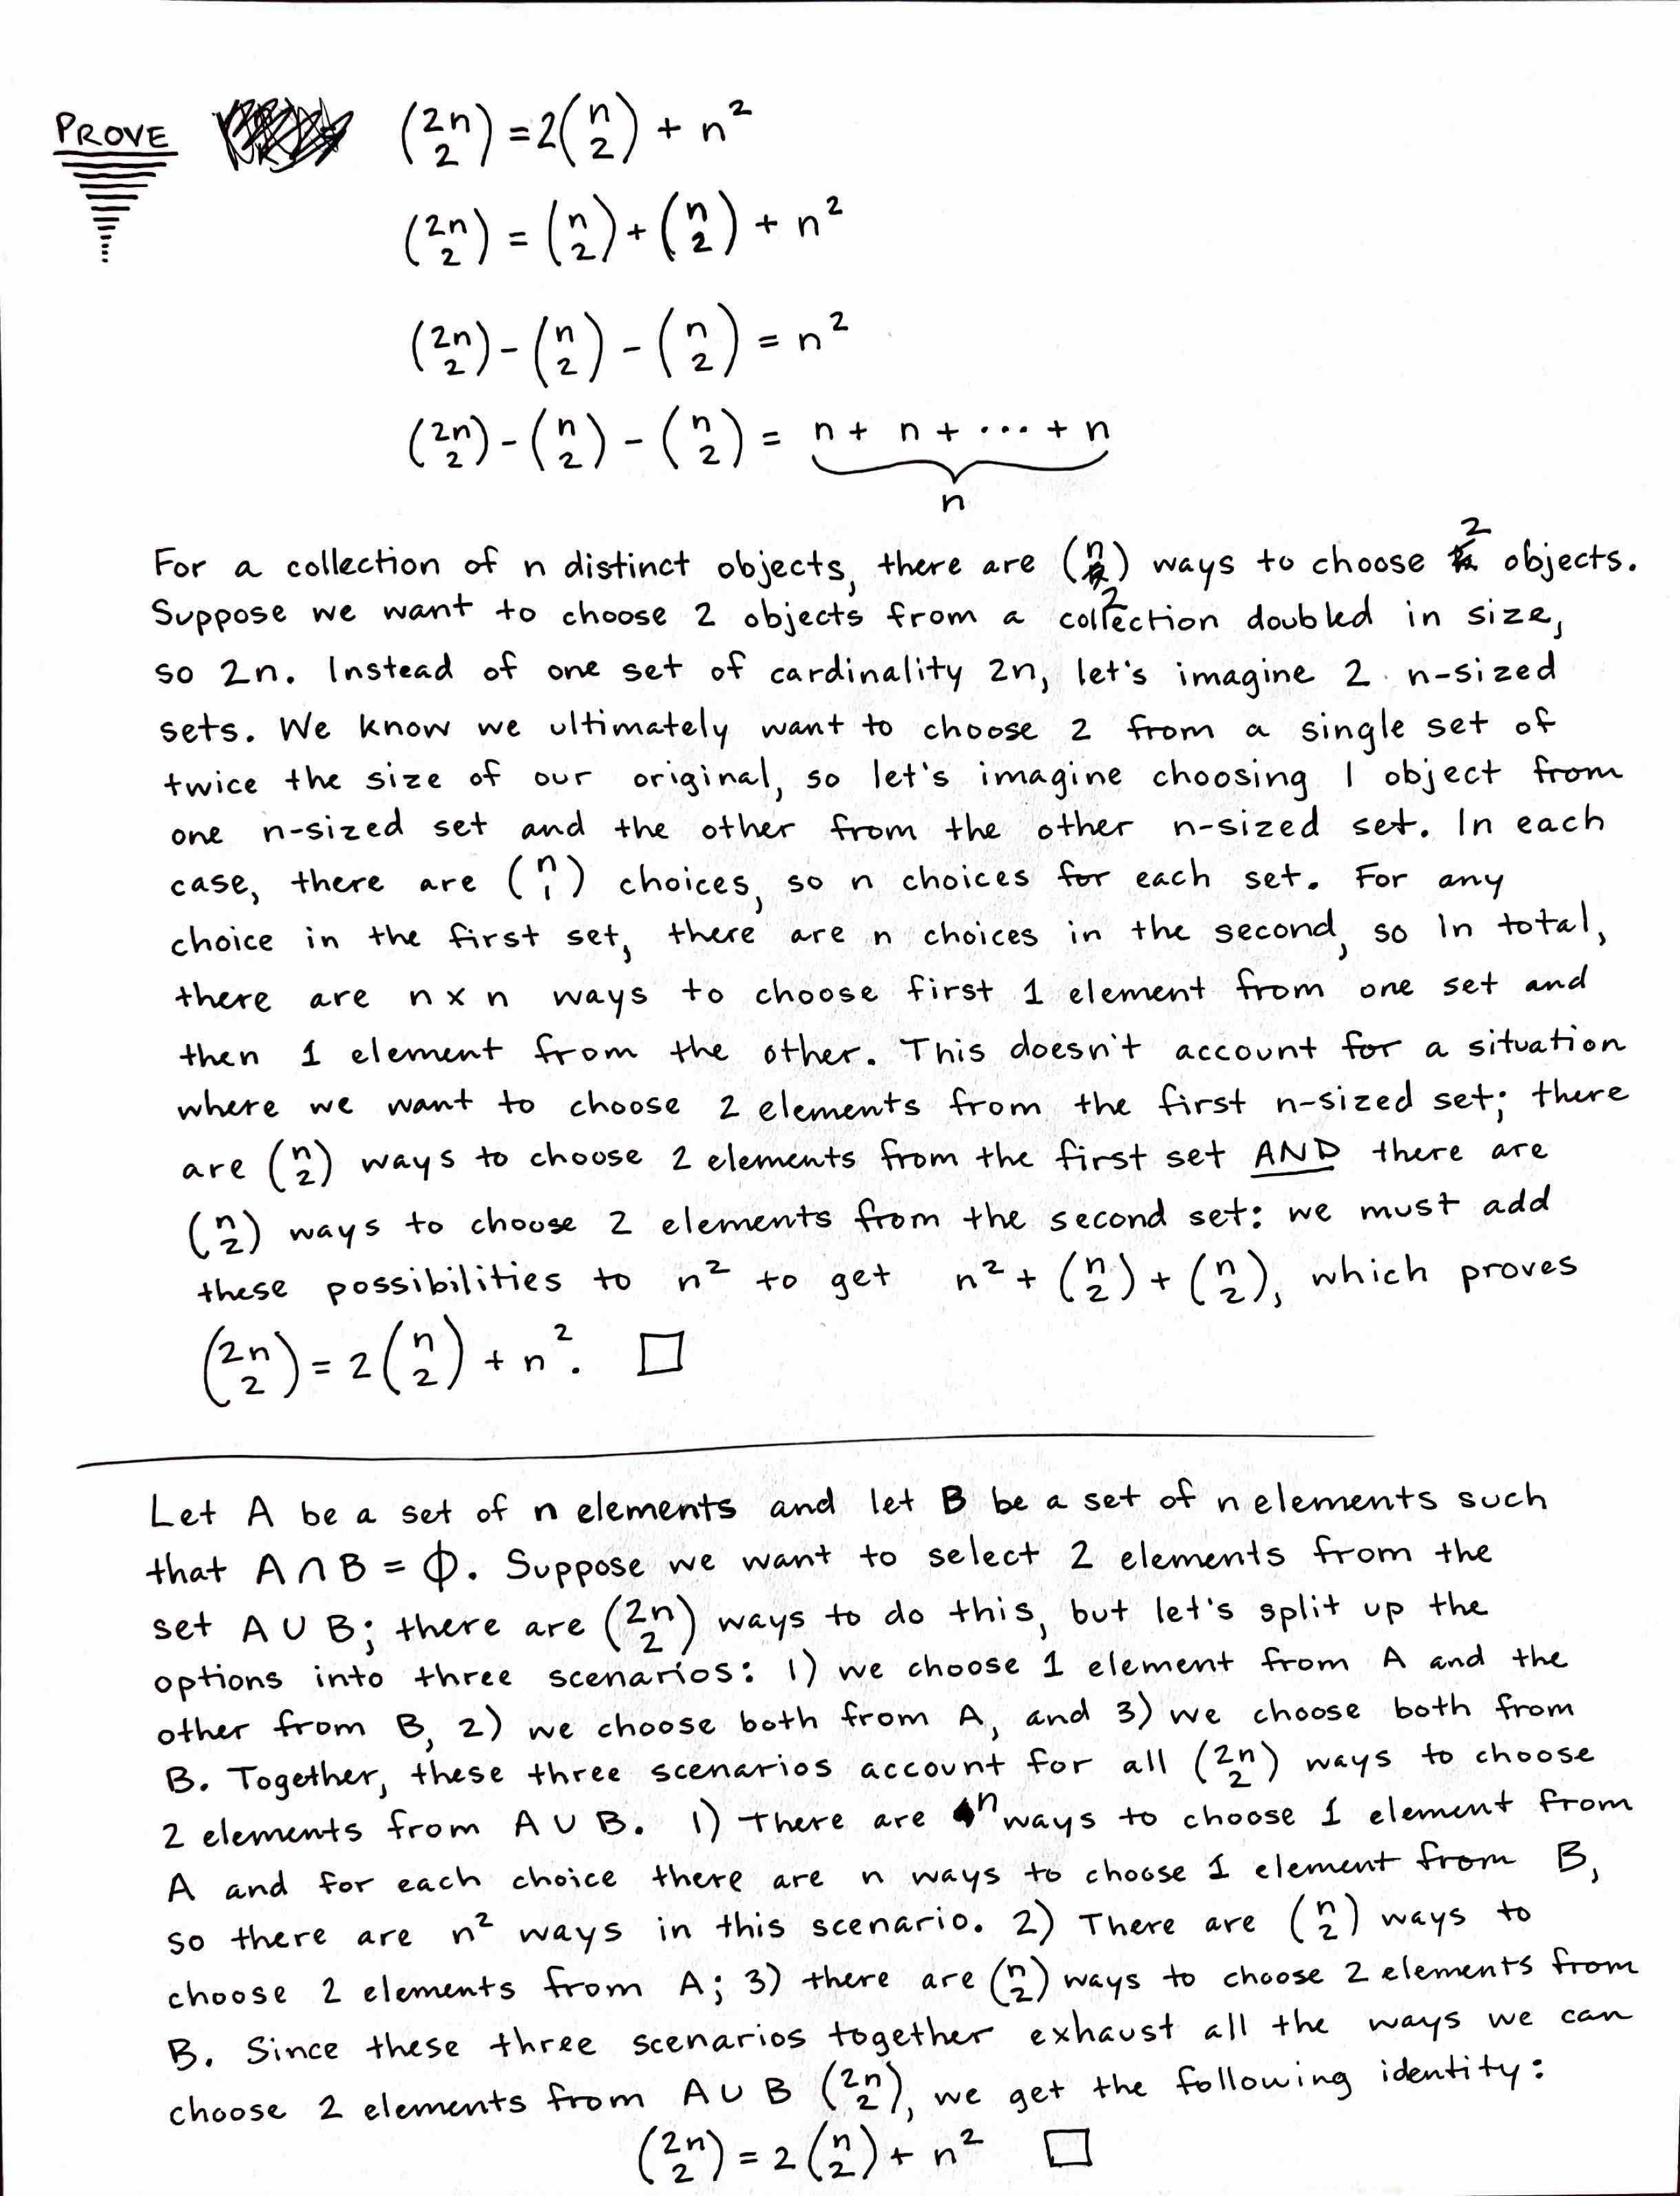 PROVE (2n 2) = 2(n 2) + n²
(2n 2) = (n 2) + (n 2) + n²
(2n 2) - (n 2) - (n 2) = n²
(2n 2) - (n 2) - (n 2) = n + n + ... + n
n
For a collection of n distinct objects, there are (n 2) ways to choose 2 objects.
Suppose we want to choose 2 objects from a collection doubled in size,
so 2n. Instead of one set of cardinality 2n, let's imagine 2 n-sized
sets. We know we ultimately want to choose 2 from a single set of
twice the size of our original, so let's imagine choosing 1 object from
one n-sized set and the other from the other n-sized set. In each
case, there are (n 1) choices, so n choices for each set. For any
choice in the first set, there are n choices in the second, so In total,
there are n x n ways to choose first 1 element from one set and
then 1 element from the other. This doesn't account for a situation
where we want to choose 2 elements from the first n-sized set; there
are (n 2) ways to choose 2 elements from the first set AND there are
(n 2) ways to choose 2 elements from the second set: we must add
these possibilities to n² to get n² + (n 2) + (n 2), which proves
(2n 2) = 2(n 2) + n². □
Let A be a set of n elements and let B be a set of n elements such
that A ∩ B = ϕ. Suppose we want to select 2 elements from the
set A ∪ B; there are (2n 2) ways to do this, but let's split up the
options into three scenarios: 1) we choose 1 element from A and the
other from B, 2) we choose both from A, and 3) we choose both from
B. Together, these three scenarios account for all (2n 2) ways to choose
2 elements from A ∪ B. 1) There are n ways to choose 1 element from
A and for each choice there are n ways to choose 1 element from B,
so there are n² ways in this scenario. 2) There are (n 2) ways to
choose 2 elements from A; 3) there are (n 2) ways to choose 2 elements from
B. Since these three scenarios together exhaust all the ways we can
choose 2 elements from A ∪ B (2n 2), we get the following identity:
(2n 2) = 2(n 2) + n² □